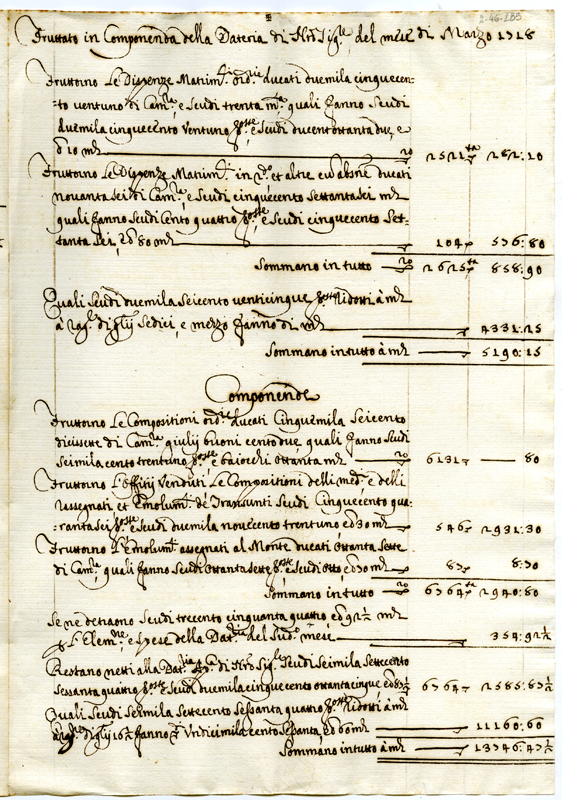 2-46-185
Fruttato in Componenda della Dateria di Nro Sigre del mese di Marzo 1718
Fruttorno Le Dispenze Matrimli ordrie ducati duemila cinquecen=
=to ventuno di Camra, e Scudi trenta mta quali fanno Scudi
duemila cinquecento Ventuno e Scudi ducentottanta due, e
d 10 mta 2521 282:10
Fruttorno Le Dispenze Matrimli in et altre ducati
novantasei di Camra, e Scudi cinquecento Settantasei mta
quali fanno Scudi Cento quattro e Scudi cinquecento Set=
=tanta Sei, 80 mta 104 576:80
Sommano in tutto 2625 858:90
Quali Scudi duemila Seicento venticinque ridotti à mta
à di Sedici, e mezzo fanno di mta 4331:25
Sommano in tutto à mta 5190:15
Componende
Fruttorno Le Compositioni ordrie ducati Cinquemila Seicento
dicisette di Camra giulij buoni cento due quali fanno Scudi
Seimila cento trentuno e baiocchi ottanta mta 6131 80
Fruttorno L'offitij Venduti Le Compositioni delli e delli
rassegnati et Emolumti de Transunti Scudi Cinquecento qua=
=rantasei e Scudi duemila novecento trentuno 30 mta 546 2931:30
Fruttorno L'Emolumti assegnati al Monte ducati ottanta Sette
di Camra quali fanno Scudi ottantasette e Scudi otto 30 mta 87 8:30
Sommano in tutto 6764 2940:80
Se ne detraono Scudi trecento cinquanta quattro 92½ mta
L'Elemne, e spese della Datria del Sudo mese 354:92½
Restano netti alla Datria di Nro Sigre Scudi Seimila Settecento
Sessanta quattro e Scudi duemilacinquecento ottantacinque 6764 2585:87½
Quali Scudi Seimila Settecento Sessanta quattro ridotti à mta
à di 16½ fanno Undicimila cento Sessanta 60 mta 11160:60
Sommano in tutto à mta 13746:47½